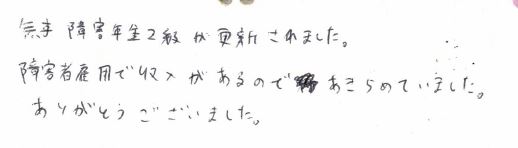 無事 障害年金2級が更新されました。
障害者雇用で収入があるのであきらめていました。
ありがとうございました。